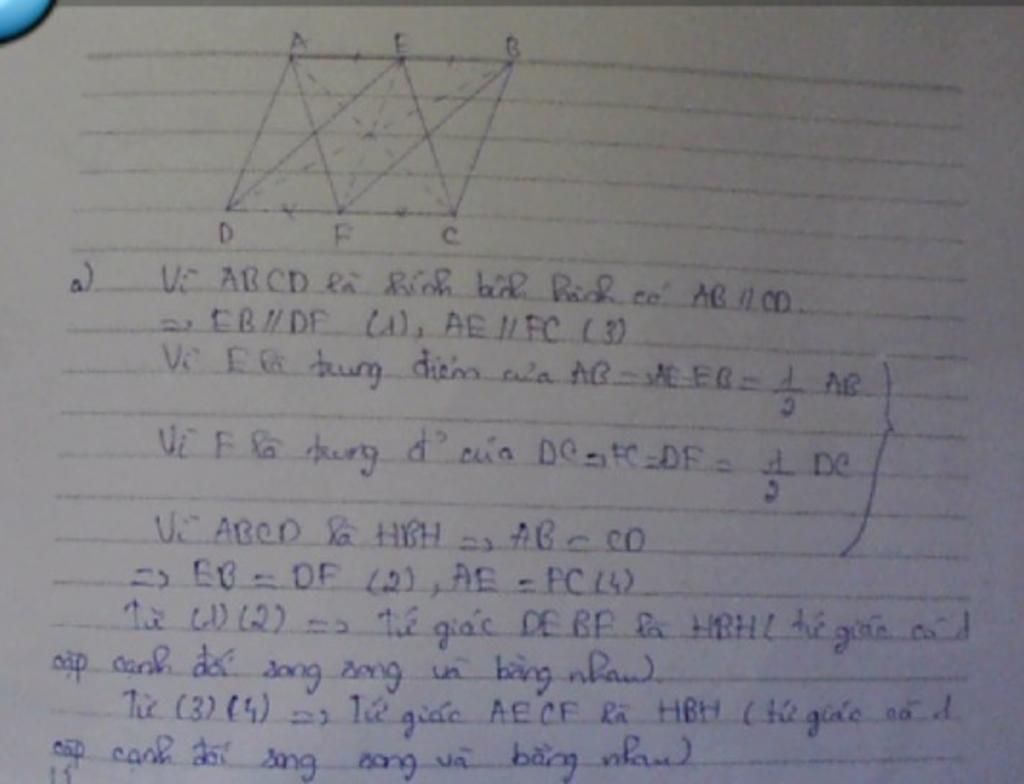 A E B
D F C
a) Vì ABCD là hình bình hành có AB // CD.
=> EB // DF (1), AE // FC (3)
Vì E là trung điểm của AB => AE = EB = 1/2 AB
Vì F là trung đ' của DC => FC = DF = 1/2 DC
Vì ABCD là HBH => AB = CD
=> EB = DF (2), AE = FC (4)
Từ (1) (2) => Tứ giác DEBF là HBH ( tứ giác có 1
cặp cạnh đối song song và bằng nhau)
Từ (3) (4) => Tứ giác AECF là HBH ( tứ giác có 1
cặp cạnh đối song song và bằng nhau)